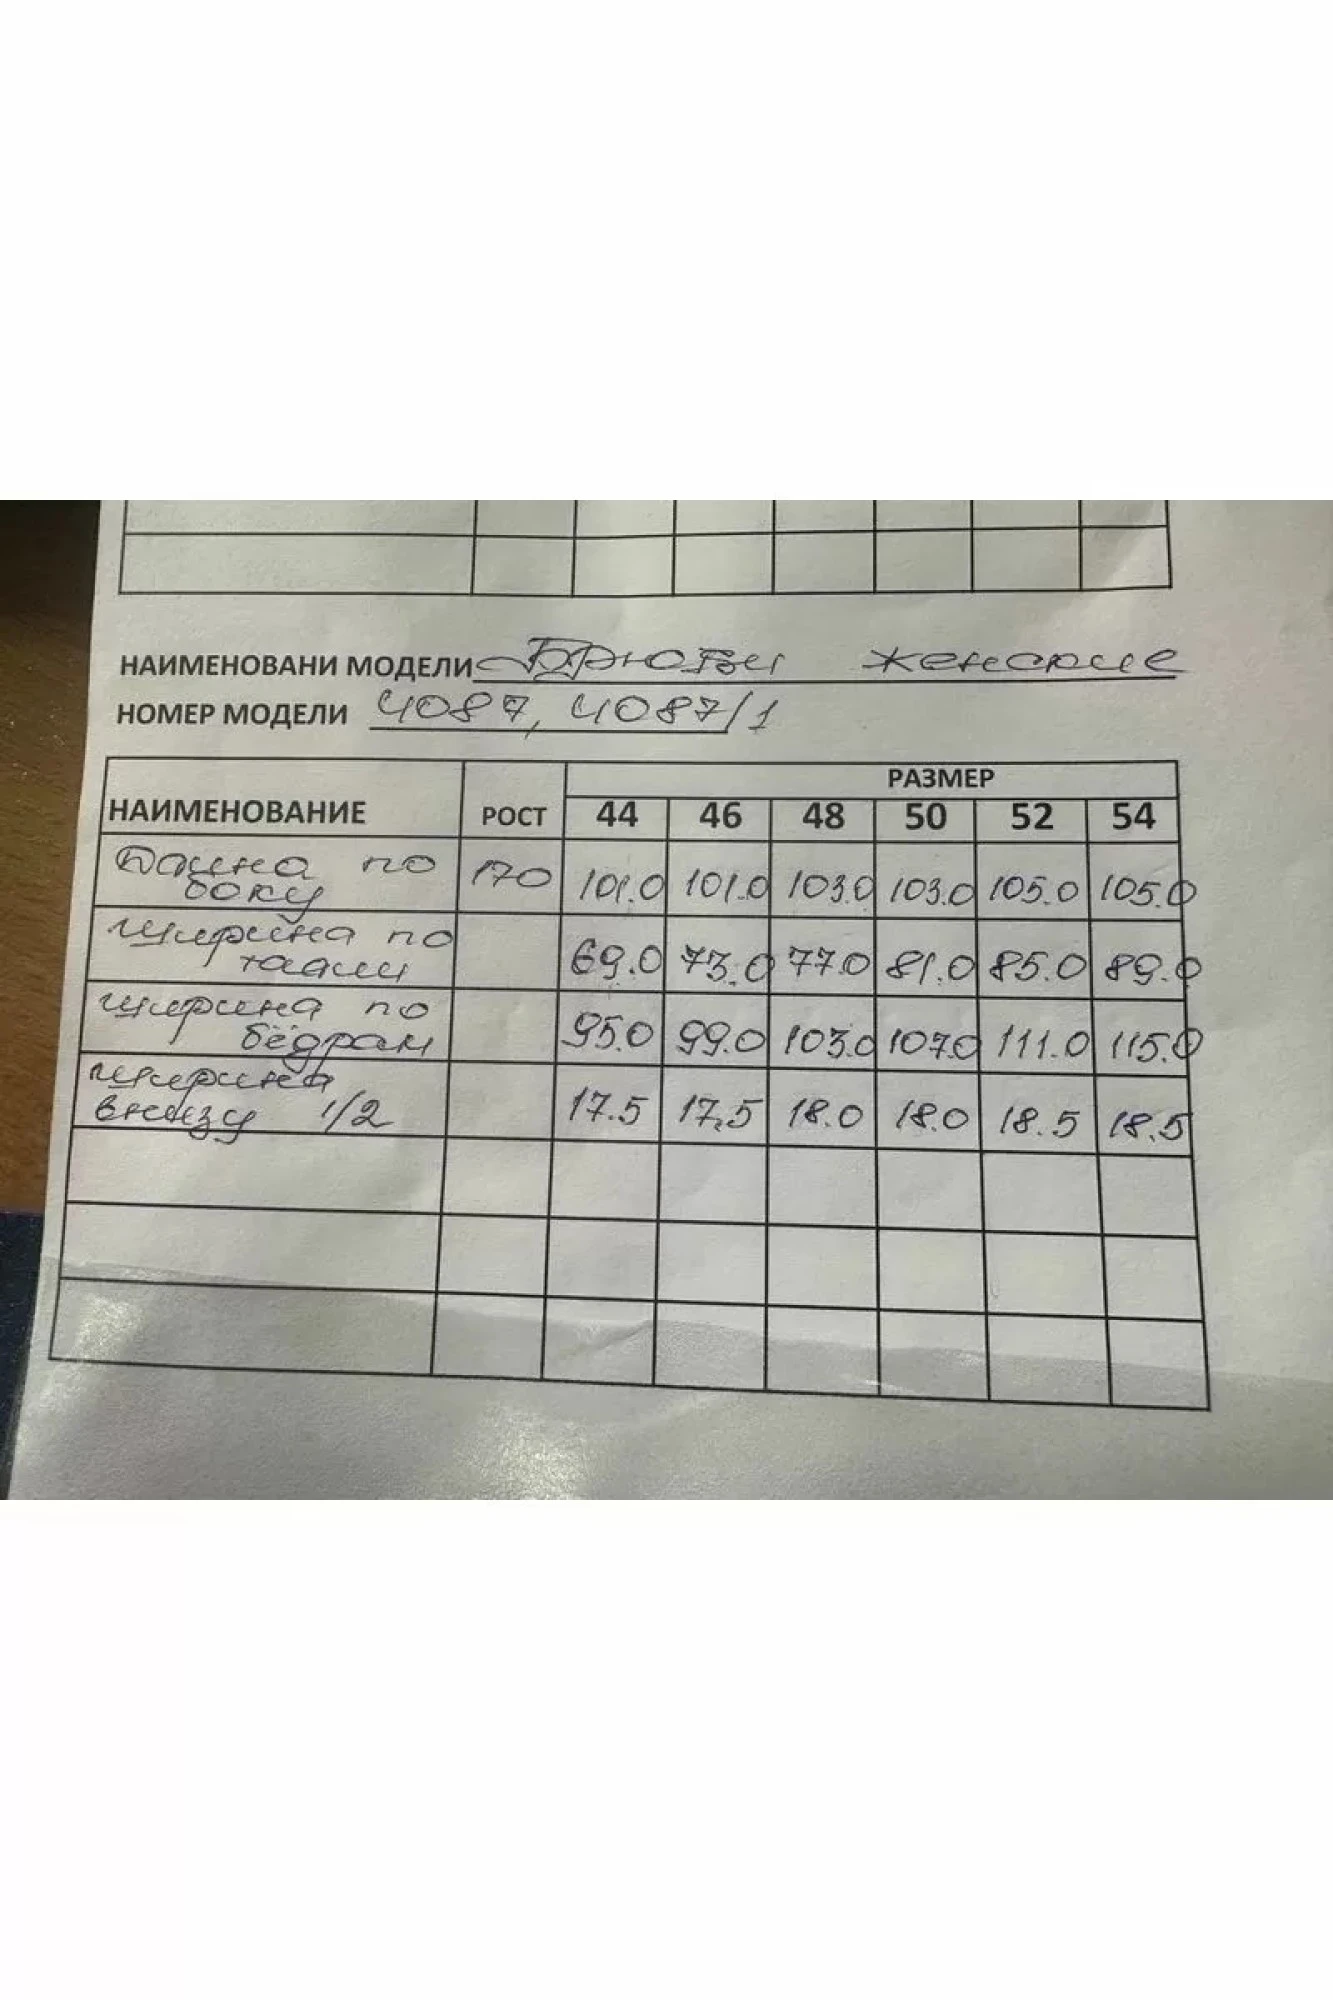 НАИМЕНОВАНИ МОДЕЛИ Брюки женские
НОМЕР МОДЕЛИ 4087, 4087/1
НАИМЕНОВАНИЕ РОСТ РАЗМЕР
44 46 48 50 52 54
Длина по боку 170 101.0 101.0 103.0 103.0 105.0 105.0
ширина по талии 69.0 73.0 77.0 81.0 85.0 89.0
ширина по бёдрам 95.0 99.0 103.0 107.0 111.0 115.0
ширина внизу 1/2 17.5 17.5 18.0 18.0 18.5 18.5